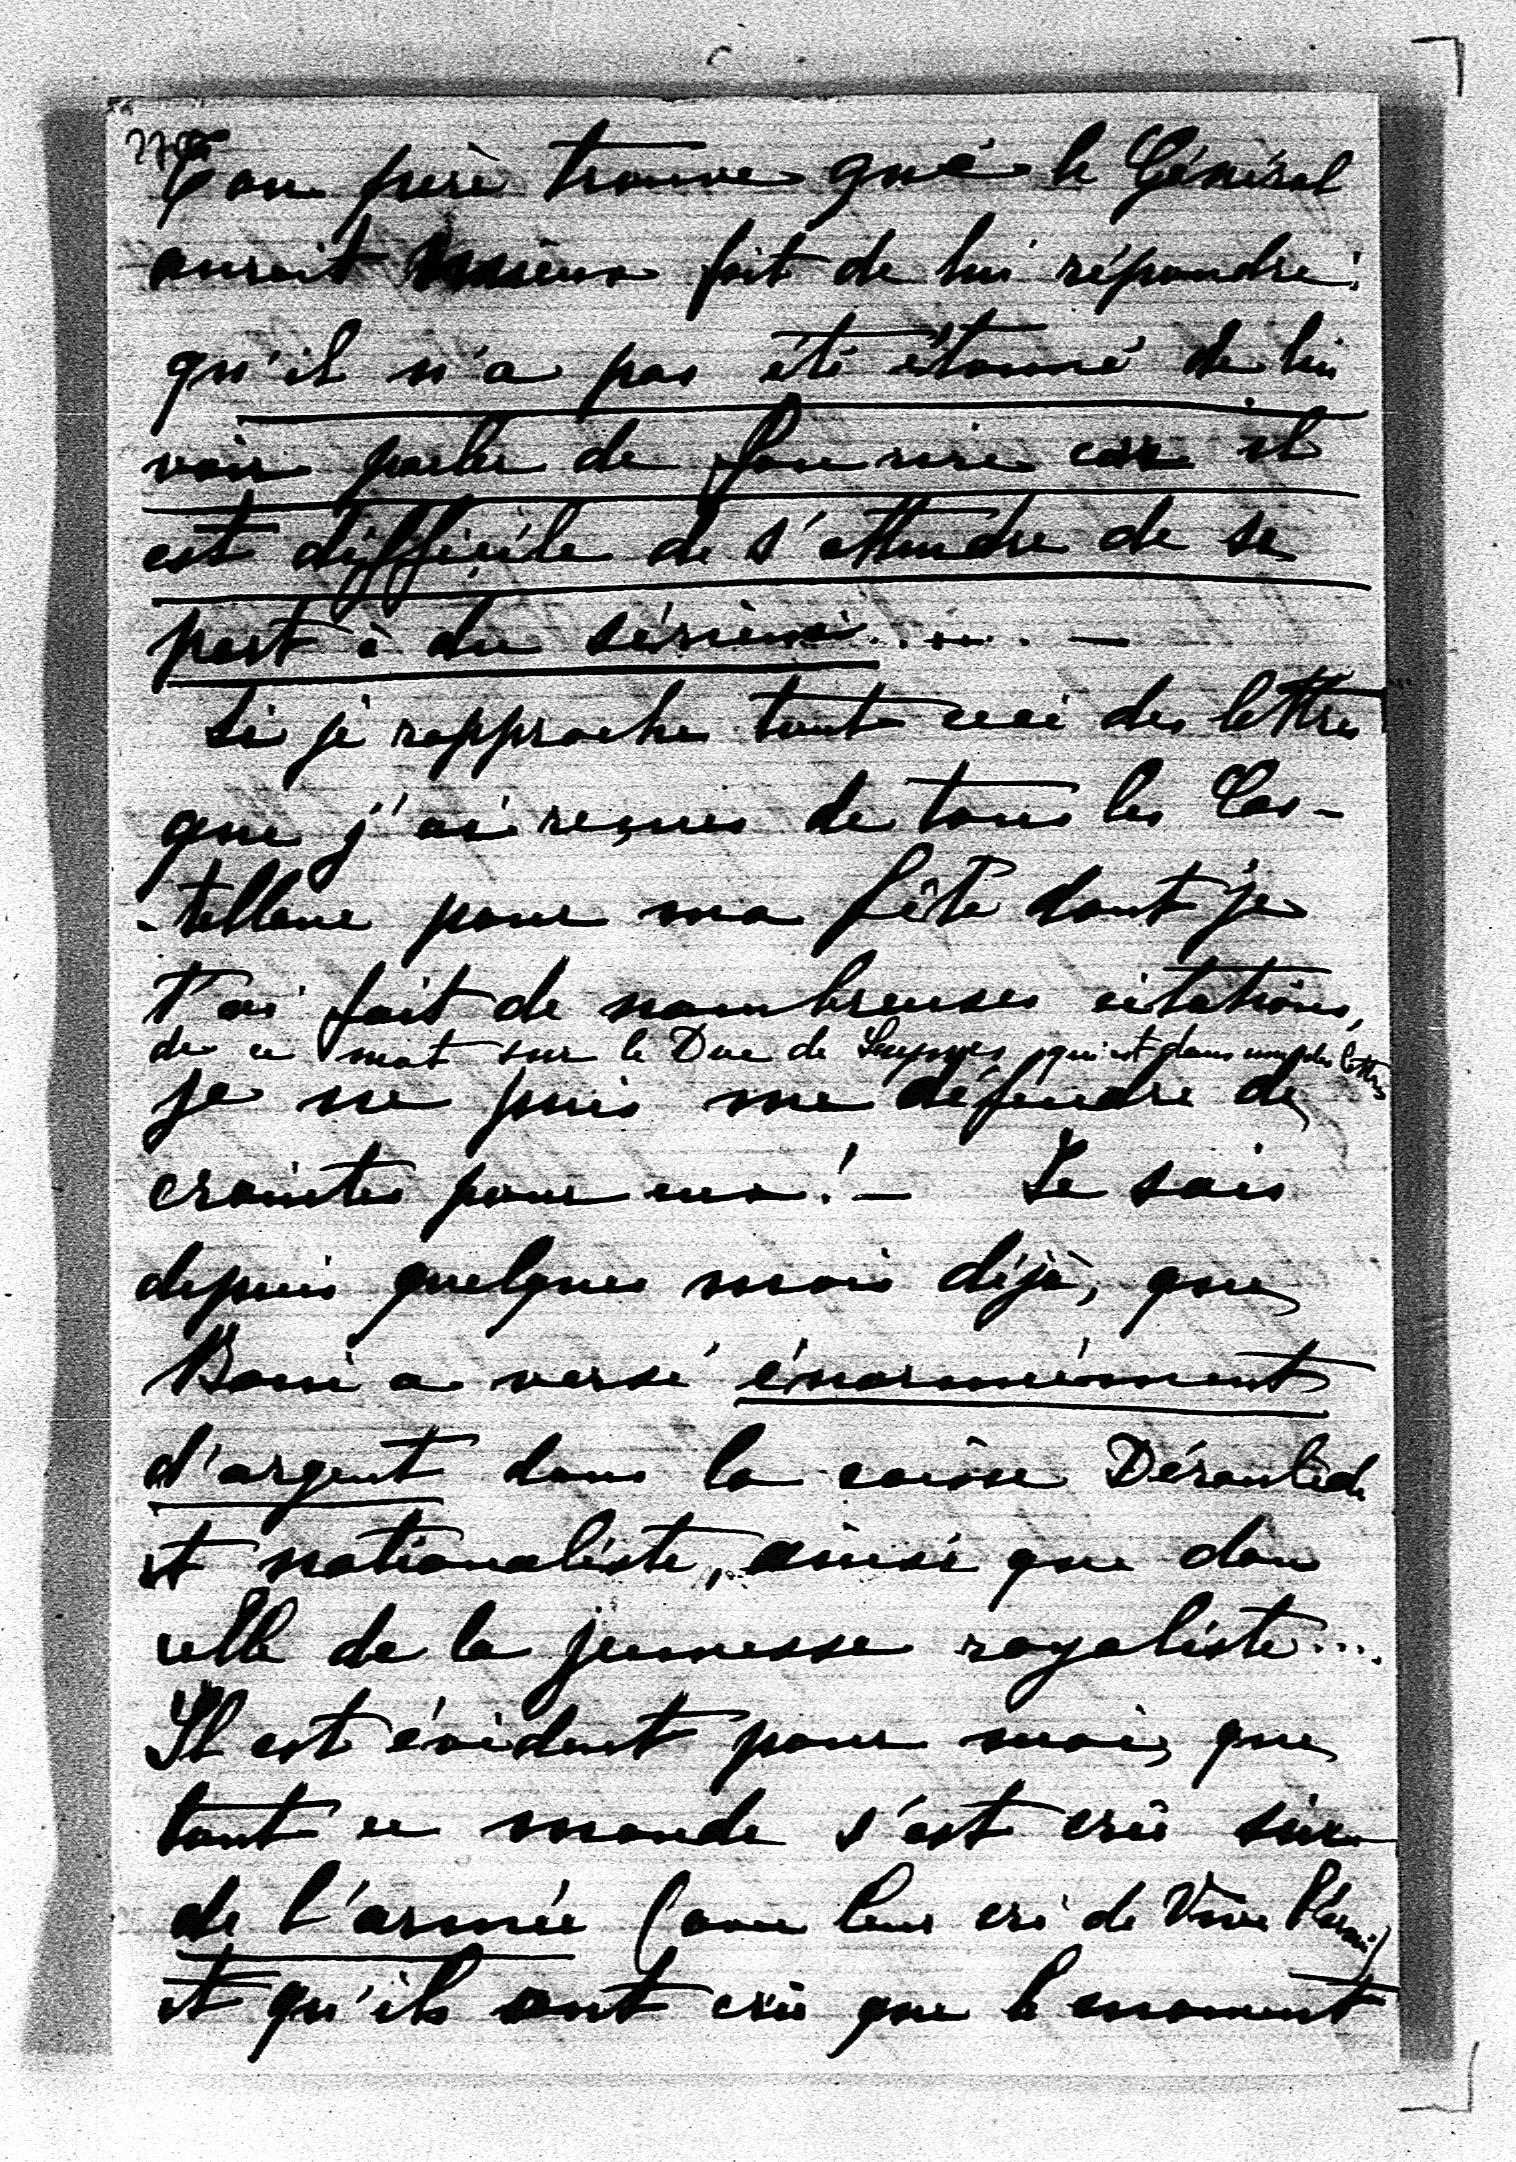 Ton frère trouve que le Général
aurait mieux fait de lui répondre:
qu'il n'a pas été étonné de lui
voir parler de fou rire car il
est difficile de s'attendre de sa
part à du sérieux....... —
Si je rapproche tout ceci des lettres
que j'ai reçues de tous les Cas-
-tellane pour ma fête dont je
t'ai fait de nombreuses citations,
de ce mot sur le Duc de Luynes qui est dans une des lettres
je ne puis me défendre de
craintes pour eux! — Je sais
depuis quelques mois déjà, que
Boni a versé énormément
d'argent dans la caisse Déroulède
et nationaliste, ainsi que dans
celle de la jeunesse royaliste...
Il est évident pour moi, que
tout ce monde s'est crû sûre
de l'armée (avec leur cri de Vive l'armée)
et qu'ils ont crû que le moment